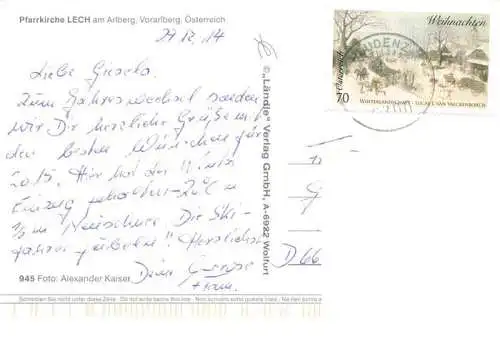 Pfarrkirche LECH am Arlberg, Vorarlberg, Österreich
29.12.14
Liebe Gisela.
Zum Jahreswechsel senden
wir Dir herzliche Grüße mit
den besten Wünschen für
2015. Hier hat der Winter
Einzug gehalten - 20°C u
½ m Neuschnee. Die Ski-
fahrer jubeln! Herzlichst
Dein
945 Foto: Alexander Kaiser
© „Ländle" Verlag GmbH, A-6922 Wolfurt
Weihnachten
Österreich
70
WINTERLANDSCHAFT - LUCAS I. VAN VALCKENBORCH
UDENZ
D 66
Schreiben Sie nicht unter diese Zeile - Do not write below this line - Non scrivere sotto questa linea - Ne rien